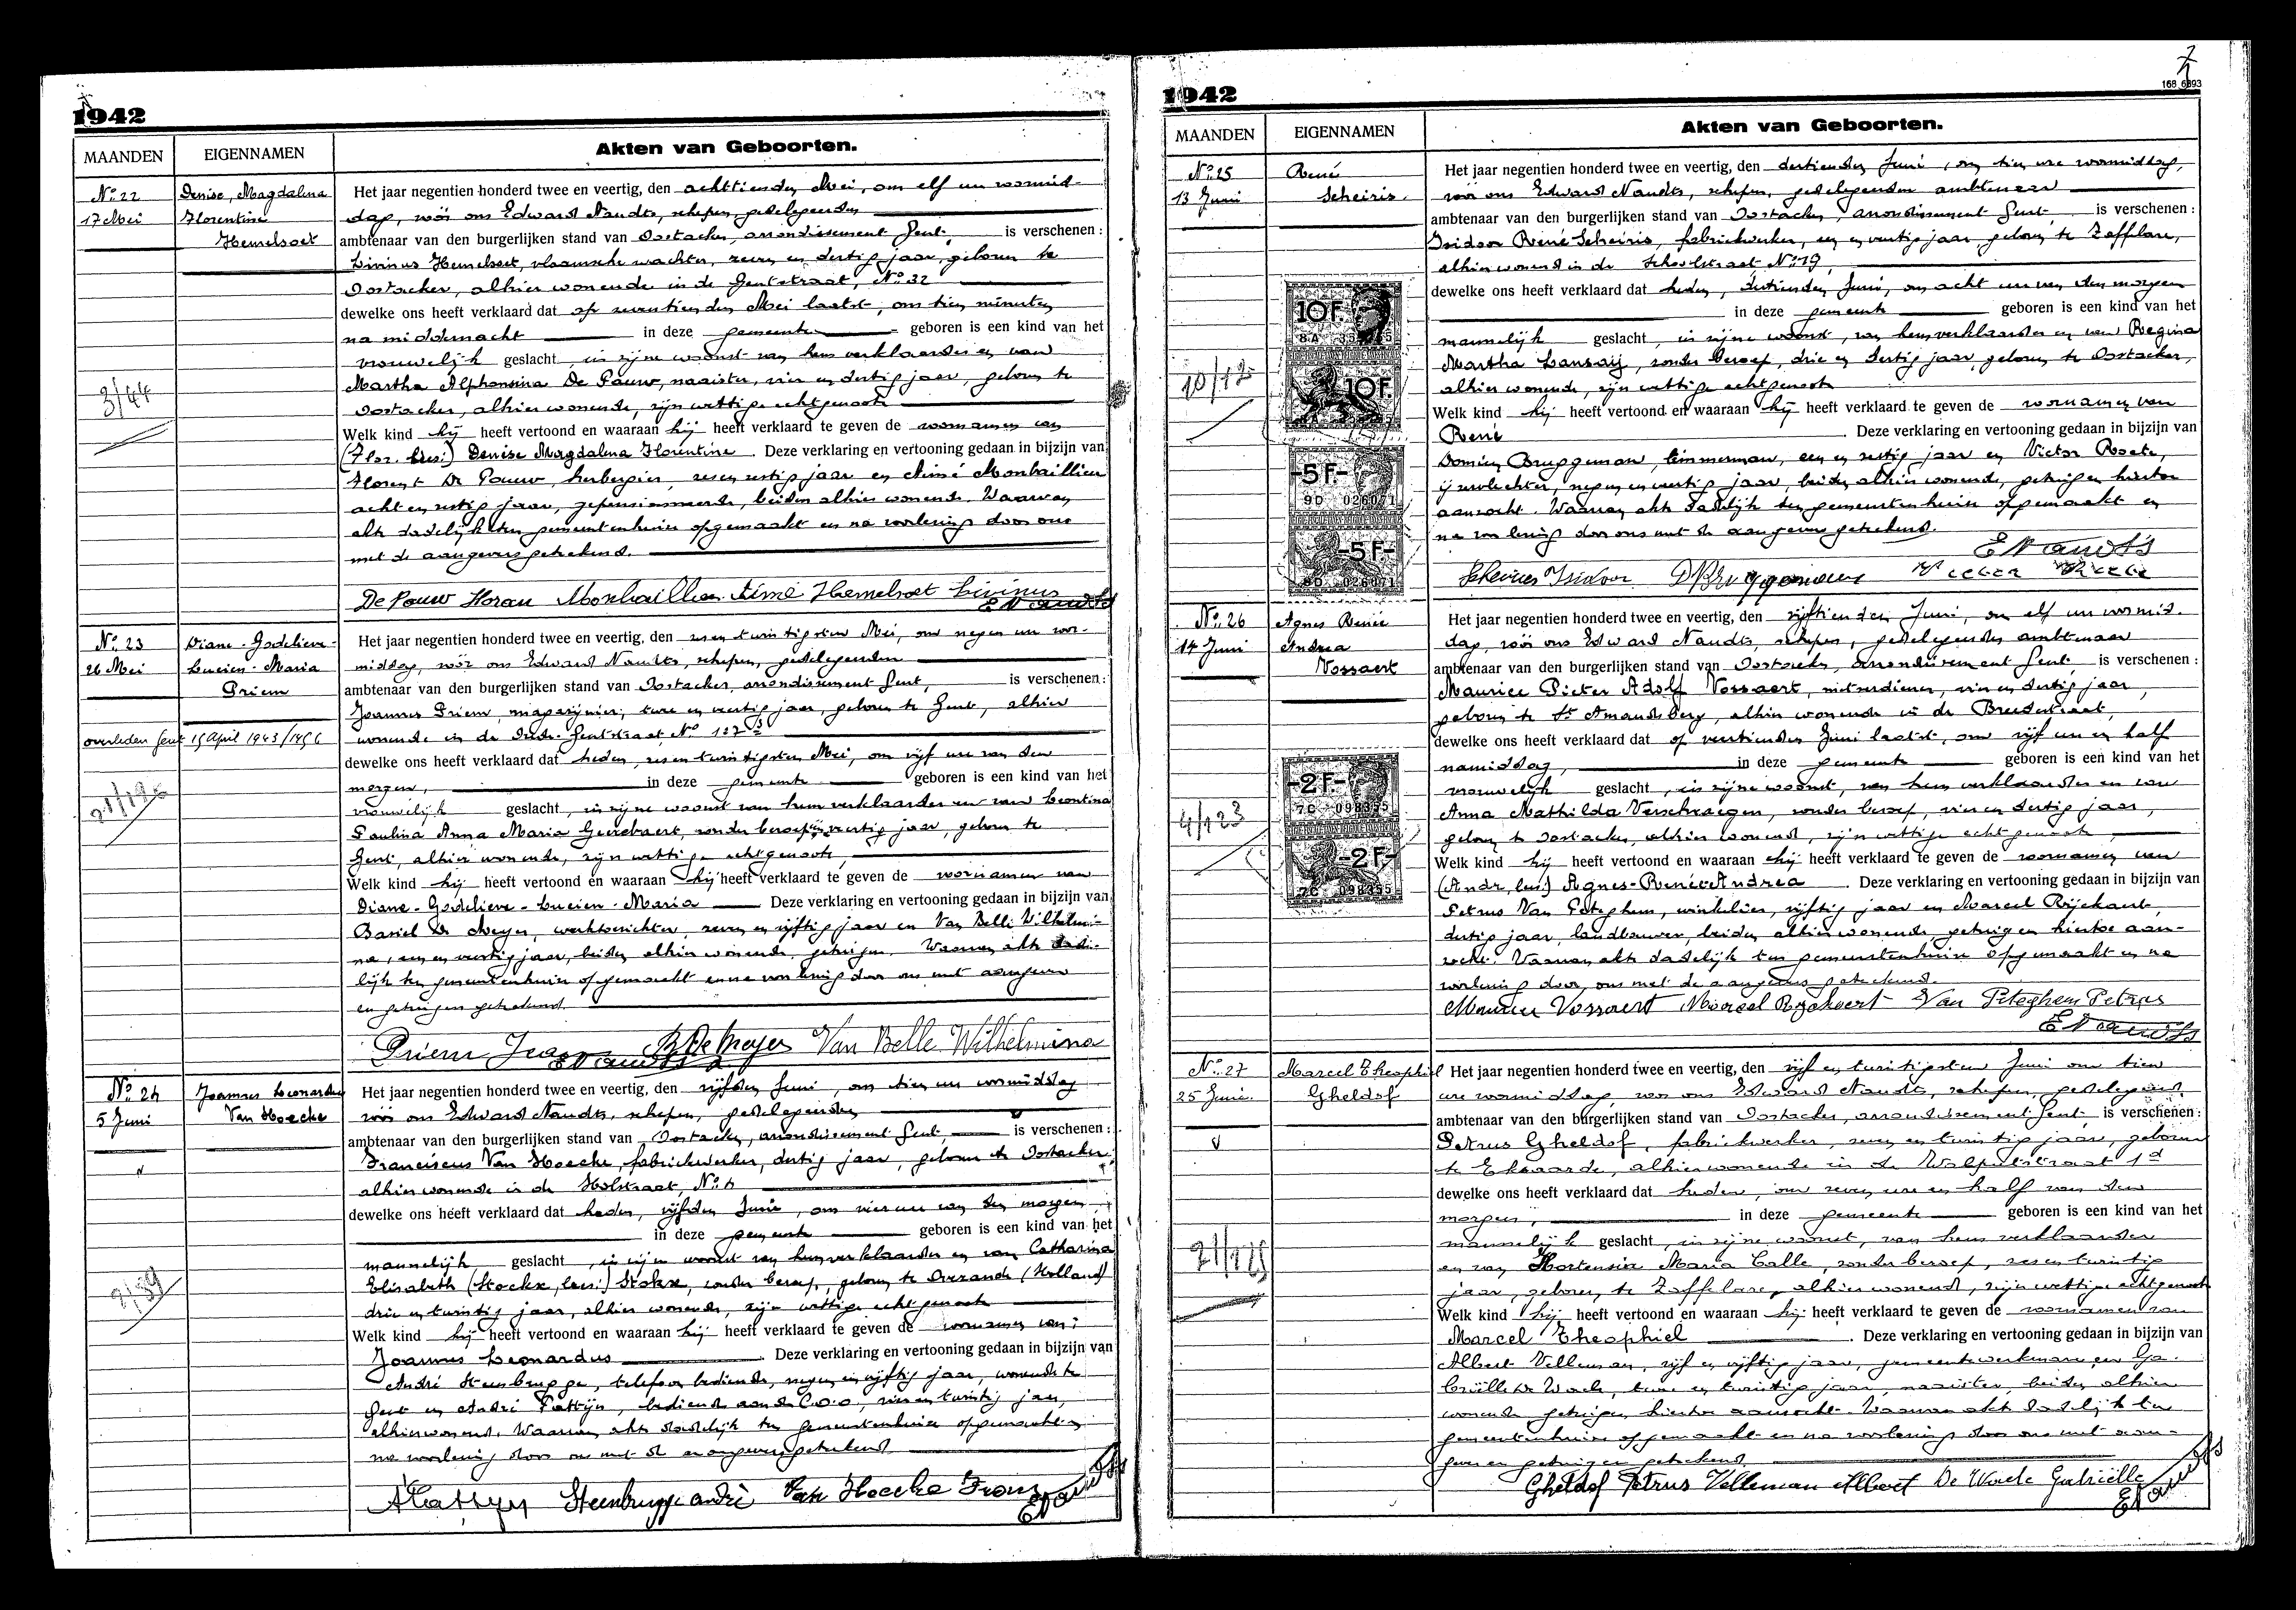 1942
MAANDEN
EIGENNAMEN
Akten van Geboorten.
No. 22
17 Mei
Denise, Magdalena
Florentine
Hemelsoet
3/44
Het jaar negentien honderd twee en veertig, den achttienden Mei, om elf ure voormid-
dag, vóór ons Edward Naudts, schepen, gedelegeerden
ambtenaar van den burgerlijken stand van Oostacker, arrondissement Gent, is verschenen:
Livinus Hemelsoet, vlaamsche wachter, zeven en dertig jaar, geboren te
Oostacker, alhier wonende in de Gentstraat, No. 32
dewelke ons heeft verklaard dat op zeventienden Mei laatst, om tien minuten
na middernacht in deze gemeente geboren is een kind van het
vrouwelijk geslacht, in zijne woonst van hem verklaarder en van
Martha Alphonsina De Pauw, naaister, vier en dertig jaar, geboren te
Oostacker, alhier wonende, zijn wettige echtgenoote
Welk kind hij heeft vertoond en waaraan hij heeft verklaard te geven de voornamen van
(Flor. lees:) Denise Magdalena Florentine. Deze verklaring en vertooning gedaan in bijzijn van
Florent De Pauw, herbergier, zes en zestig jaar en Aimé Monbaillieu
acht en zestig jaar, gepensionneerde, beiden alhier wonende. Waarvan
akte dadelijk ten gemeentenhuize opgemaakt en na voorlezing door ons
met de aangevers geteekend.
De Pauw Monbaillieu Aimé Hemelsoet Livinus
E Naudts
No. 23
26 Mei
Diane-Godelieve-
Lucien-Maria
Priem
overleden Gent 15 April 1943/1456
Het jaar negentien honderd twee en veertig, den zes en twintigsten Mei, om negen ure voor-
middag, vóór ons Edward Naudts, schepen, gedelegeerden
ambtenaar van den burgerlijken stand van Oostacker, arrondissement Gent, is verschenen:
Joannes Priem, magazijnier, twee en veertig jaar, geboren te Gent, alhier
wonende in de Gentstraat No
dewelke ons heeft verklaard dat heden, zes en twintigsten Mei, om vijf ure van den
morgen, in deze gemeente geboren is een kind van het
vrouwelijk geslacht, in zijne woonst van hem verklaarder en van Leontina
Paulina Anna Maria zonder beroep, veertig jaar, geboren te
Gent, alhier wonende, zijn wettige echtgenoote,
Welk kind hij heeft vertoond en waaraan hij heeft verklaard te geven de voornamen van
Diane-Godelieve-Lucien-Maria Deze verklaring en vertooning gedaan in bijzijn van
Basiel De Meyer, zeven en vijftig jaar en Van Belle Wilhelmi-
na, een en veertig jaar, beiden alhier wonende, getuigen. Waarvan akte dade-
lijk ten gemeentenhuize opgemaakt en na voorlezing door ons met aangever
en getuigen geteekend.
Priem Jean B De Meyer Van Belle Wilhelmina
E Naudts
No. 24
5 Juni
Joannes Leonardus
Van Hoecke
2/59
Het jaar negentien honderd twee en veertig, den vijfden Juni, om tien ure voormiddag
vóór ons Edward Naudts, schepen, gedelegeerden
ambtenaar van den burgerlijken stand van Oostacker, arrondissement Gent, is verschenen:
Franciscus Van Hoecke, fabriekwerker, dertig jaar, geboren te Oostacker,
alhier wonende in de Holstraat, No. 6
dewelke ons heeft verklaard dat heden, vijfden Juni, om vier ure van den morgen,
in deze gemeente geboren is een kind van het
mannelijk geslacht, in zijne woonst van hem verklaarder en van Catharina
Elisabeth (Stockx, lees:) Stokx, zonder beroep, geboren te (Holland)
drie en twintig jaar, alhier wonende, zijn wettige echtgenoote
Welk kind hij heeft vertoond en waaraan hij heeft verklaard te geven de voornamen van:
Joannes Leonardus. Deze verklaring en vertooning gedaan in bijzijn van
André Steenbrugge, telefoon bediende, negen en vijftig jaar, wonende te
Gent en André Pattyn, bediende aan de C.O.O., vier en twintig jaar,
alhier wonende. Waarvan akte dadelijk ten gemeentenhuize opgemaakt en
na voorlezing door ons met de aangevers geteekend
A Pattyn Steenbrugge andré Van Hoecke Frans
E Naudts
1942
7
168_6893
MAANDEN
EIGENNAMEN
Akten van Geboorten.
No. 25
13 Juni
René
Scheiris.
10F.
10F.
-5F.-
9D 026071
-5F-
9D 026071
Het jaar negentien honderd twee en veertig, den dertienden Juni, om tien ure voormiddag,
vóór ons Edward Naudts, schepen, gedelegeerden ambtenaar
ambtenaar van den burgerlijken stand van Oostacker, arrondissement Gent, is verschenen:
Isidoor René Scheiris, fabriekwerker, een en veertig jaar geboren te Zaffelare,
alhier wonende in de Schoolstraat No. 19,
dewelke ons heeft verklaard dat heden, dertienden Juni, om acht ure van den morgen
in deze gemeente geboren is een kind van het
mannelijk geslacht, in zijne woonst, van hem verklaarder en van Regina
Martha Lansaij, zonder beroep, drie en dertig jaar, geboren te Oostacker,
alhier wonende, zijn wettige echtgenoote
Welk kind hij heeft vertoond en waaraan hij heeft verklaard te geven de voornamen van
René. Deze verklaring en vertooning gedaan in bijzijn van
Domien Bruggeman, timmerman, een en zestig jaar en Victor Roete,
ijzervlechter, negen en veertig jaar, beiden alhier wonende, getuigen hiertoe
aanzocht. Waarvan akte dadelijk ten gemeentenhuize opgemaakt en
na voorlezing door ons met de aangevers geteekend.
E Naudts
Scheiris Isidoor D Bruggeman
No. 26
14 Juni
Agnes Renée
Andrea
Vossaert
4/123
-2F.-
7C 098355
-2F-
7C 098355
Het jaar negentien honderd twee en veertig, den vijftienden Juni, om elf ure voormid-
dag, vóór ons Edward Naudts, schepen, gedelegeerden ambtenaar
ambtenaar van den burgerlijken stand van Oostacker, arrondissement Gent, is verschenen:
Maurice Pieter Adolf Vossaert, vier en dertig jaar,
geboren te St Amandsberg, alhier wonende in de Breedestraat,
dewelke ons heeft verklaard dat op veertienden Juni laatst, om vijf ure en half
namiddag, in deze gemeente geboren is een kind van het
vrouwelijk geslacht, in zijne woonst, van hem verklaarder en van
Anna Mathilda Verschraegen, zonder beroep, vier en dertig jaar,
geboren te Oostacker, alhier wonende, zijn wettige echtgenoote
Welk kind hij heeft vertoond en waaraan hij heeft verklaard te geven de voornamen van
(Andr, lees:) Agnes-Renée-Andrea. Deze verklaring en vertooning gedaan in bijzijn van
Petrus Van Peteghem, winkelier, vijftig jaar en Marcel Rijckaert,
dertig jaar, landbouwer, beiden alhier wonende, getuigen hiertoe aan-
zocht. Waarvan akte dadelijk ten gemeentenhuize opgemaakt en na
voorlezing door ons met de aangevers geteekend.
Maurice Vossaert Marcel Ryckaert Van Peteghem Petrus
E Naudts
No. 27
25 Juni.
Marcel Theophiel
Gheldof
Het jaar negentien honderd twee en veertig, den vijf en twintigsten Juni om tien
ure voormiddag, vóór ons Edward Naudts, schepen, gedelegeerd
ambtenaar van den burgerlijken stand van Oostacker, arrondissement Gent, is verschenen:
Petrus Gheldof, fabriekwerker, zeven en twintig jaar, geboren
te Eksaarde, alhier wonende in de Walputstraat 1d
dewelke ons heeft verklaard dat heden, om zeven ure en half van den
morgen, in deze gemeente geboren is een kind van het
mannelijk geslacht, in zijne woonst, van hem verklaarder
en van Hortensia Maria Calle, zonder beroep, zes en twintig
jaar, geboren te Zaffelare, alhier wonende, zijn wettige echtgenoote
Welk kind hij heeft vertoond en waaraan hij heeft verklaard te geven de voornamen van
Marcel Theophiel. Deze verklaring en vertooning gedaan in bijzijn van
Albert Velleman, vijf en vijftig jaar, gemeentewerkman en Ga-
briëlle De Waele, twee en twintig jaar, naaister, beiden alhier
wonende getuigen hiertoe aanzocht. Waarvan akte dadelijk ten
gemeentenhuize opgemaakt en na voorlezing door ons met aan-
gever en getuigen geteekend.
Gheldof Petrus Velleman Albert De Waele Gabriëlle
E Naudts